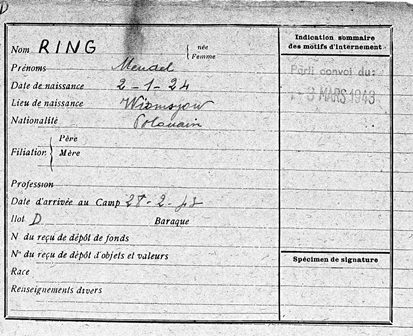 D
Nom RING { née Femme
Prénoms Mendel
Date de naissance 2-1-24
Lieu de naissance
Nationalité Polonain
Filiation { Père
Mère
Profession
Date d'arrivée au Camp 28-2-43
Ilot D Baraque
N du reçu de dépôt de fonds
N° du reçu de dépôt d'objets et valeurs
Race
Renseignements divers
Indication sommaire
des motifs d'internement
Parti convoi du:
3 MARS 1943
Spécimen de signature